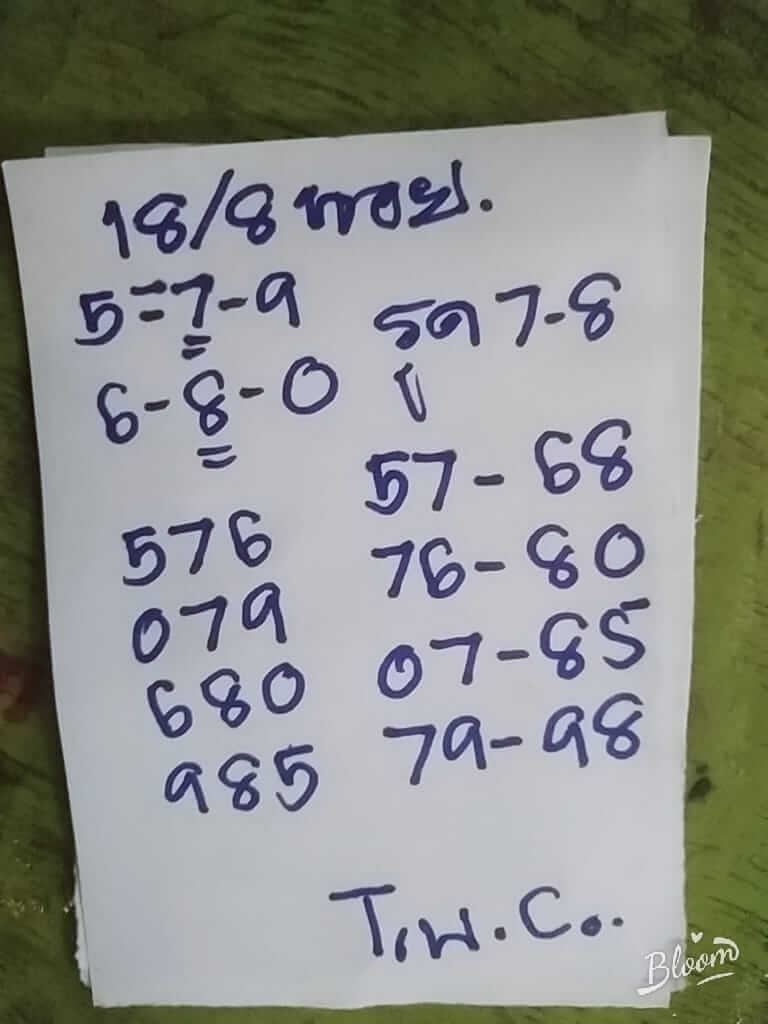 18/8 หวย.
5-7-9
6-8-0
รูด 7-8
576
079
680
985
57-68
76-80
07-85
79-98
Bloom